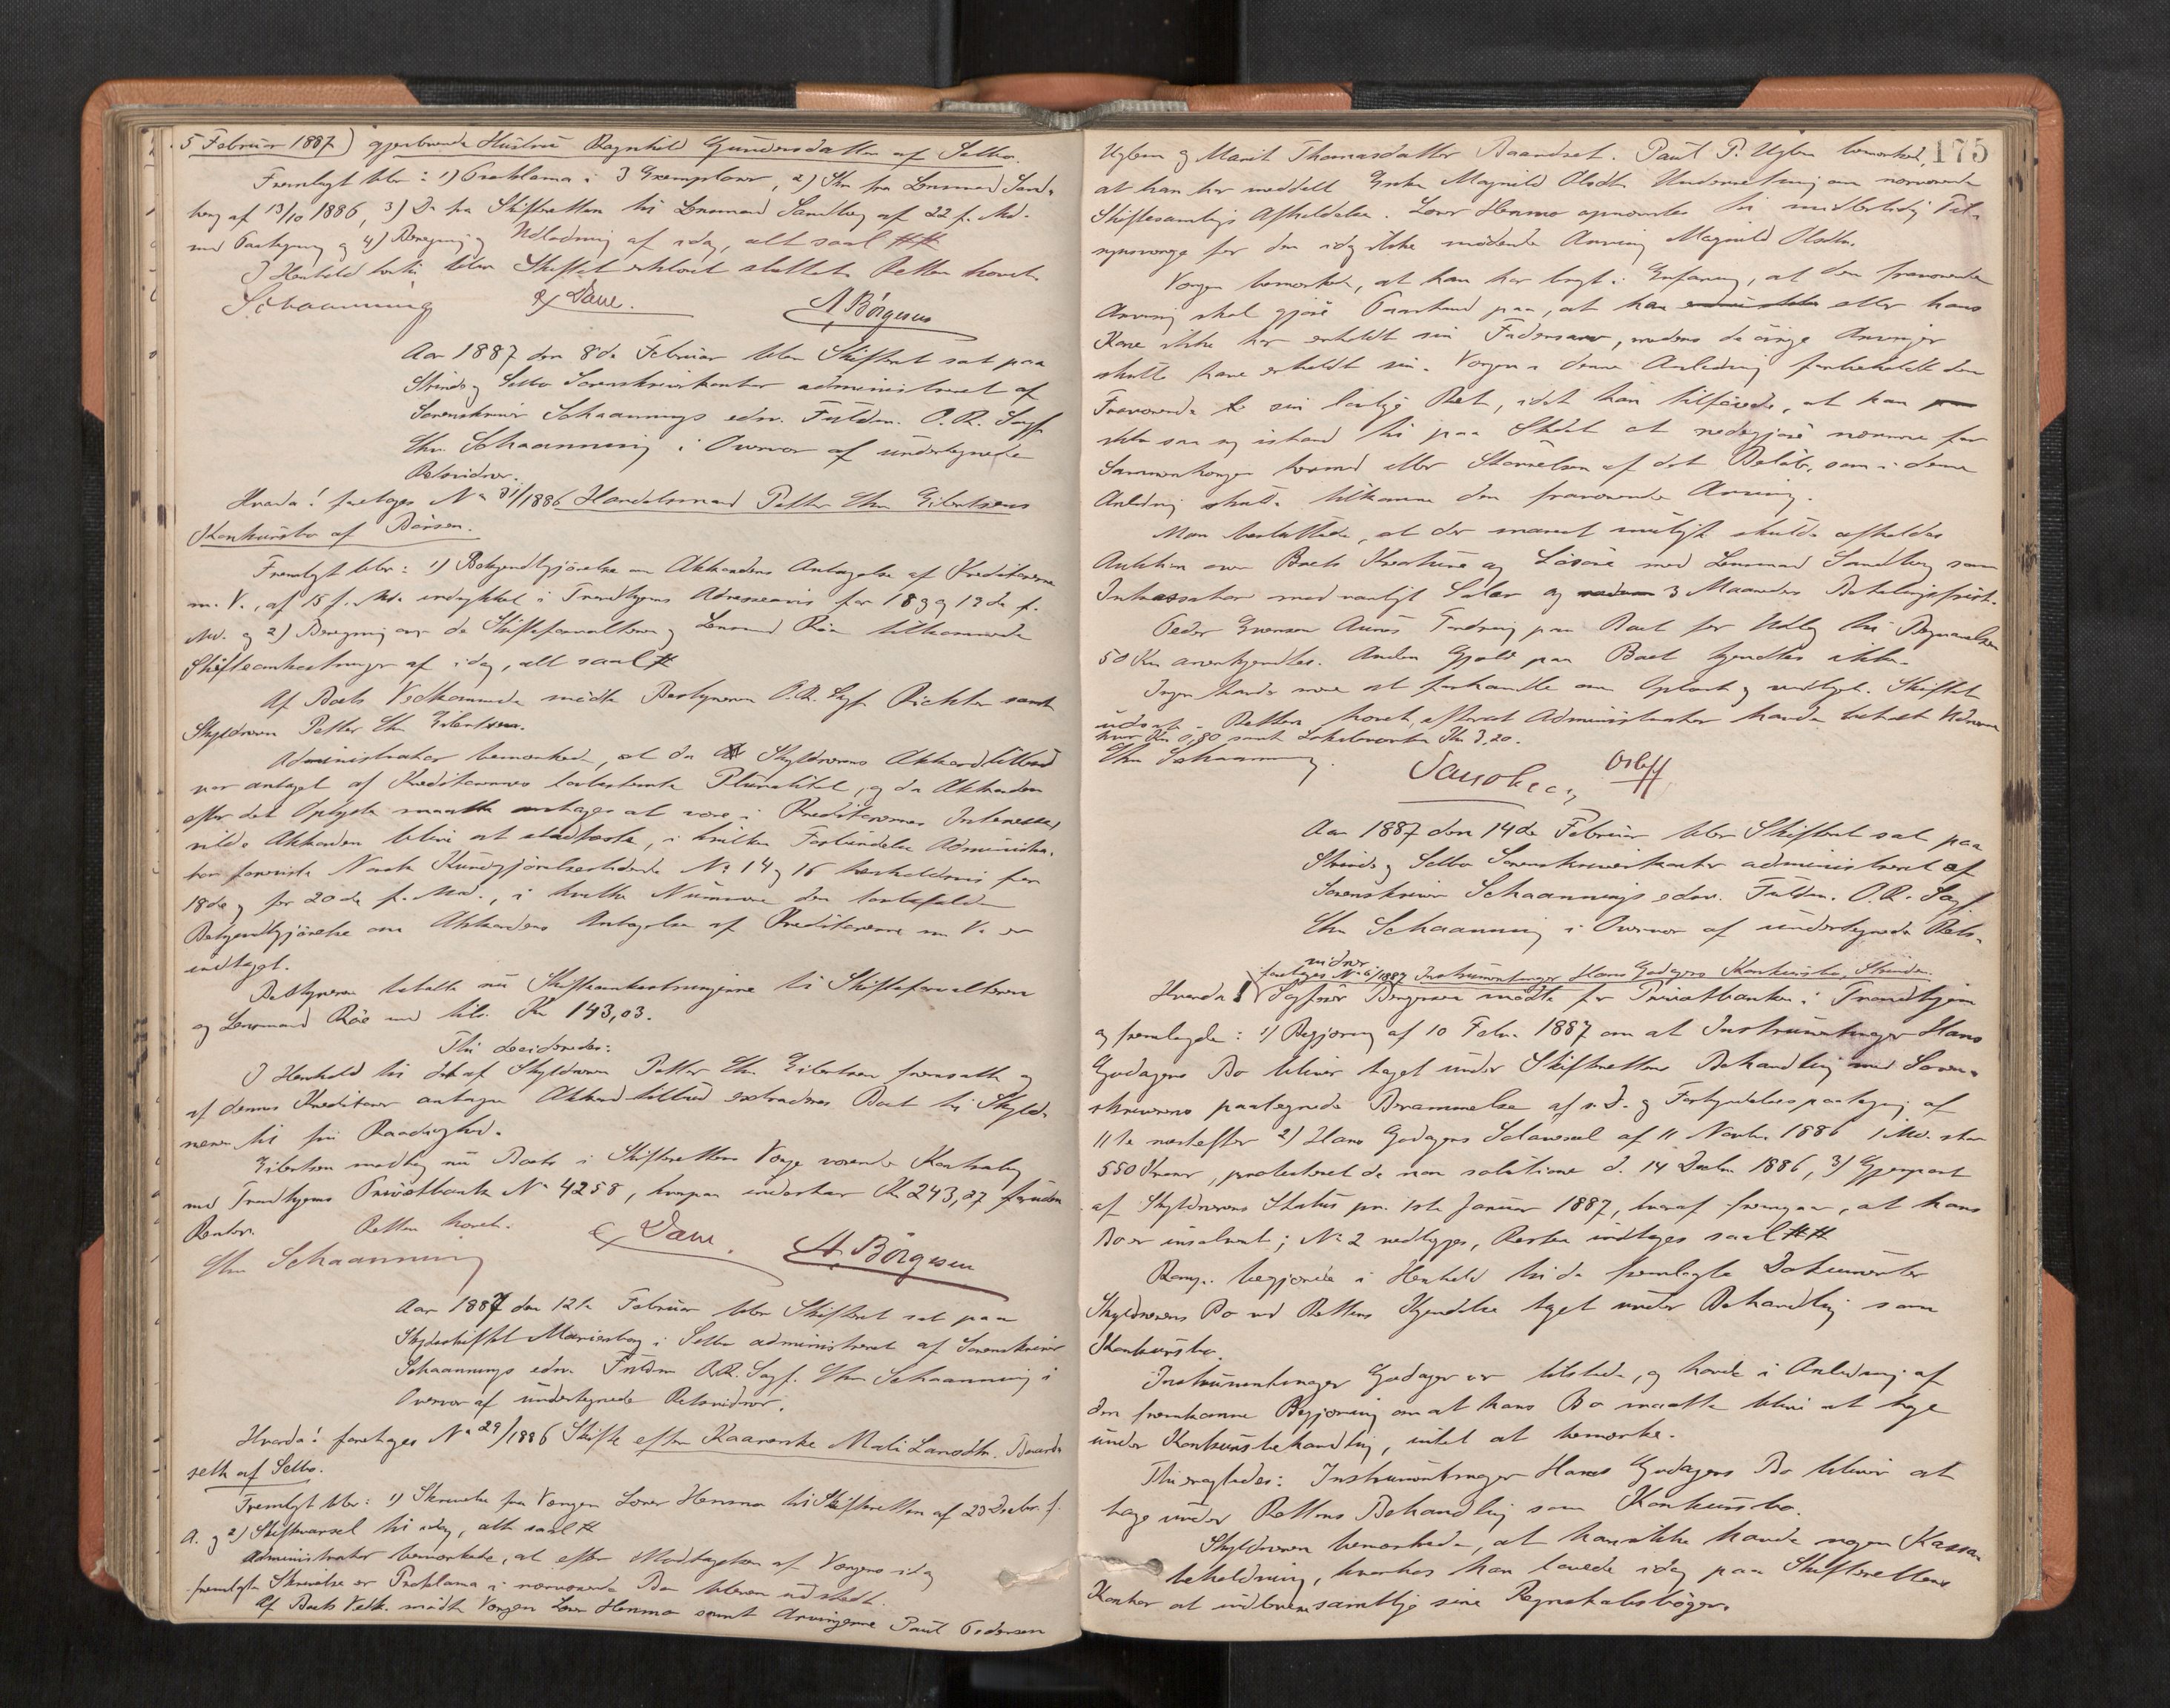 5 Februar 1887) gjenlevende Hustru Ragnhild Gundersdatter af Selbo.
Fremlagt blev: 1) Proklama i 3 Exemplarer, 2) Skr. fra Lensmand Sand-
berg af 13/10 1886, 3) Do fra Skifteretten til Lensmand Sandberg af 22 f. Md.
med Paategning og 4) Beregning og Udlodning af idag, alt saal. ##
I Henhold hertil blev Skiftet erklæret sluttet. Retten hævet.
Schaanning
A Börgesen
Aar 1887 den 8de Februar blev Skifteret sat paa
Strinde og Selbo Sorenskriverkontor administreret af
Sorenskriver Schaannings edsv. Fuldm. O.R. Sagf.
Chr. Schaanning i Overvær af undertegnede
Retsvidner.
Hvorda! foretoges No 31/1886 Handelsmand Petter Chr. Eilertsens
Konkursbo af Börsen.
Fremlagt blev: 1) Bekjendtgjörelse om Akkordens Antagelse af Kreditorerne
m. V., af 15 f. Md. indrykket i Trondhjems Adresseavis for 18 og 19de f.
Md. og 2) Beregning over de Skifteforvalteren og Lensmand Röe tilkommende
Skifteomkostninger af idag, alt saal. #
Af Boets Vedkommende mödte Bestyreren O.R. Sagf. Richter samt
Skyldneren Petter Chr. Eilertsen.
Administrator bemærkede, at da Skyldnerens Akkordtilbud
var antaget af Kreditorernes lovbestemte Pluralitet, og da Akkorden
efter det Oplyste maatte antages at være i Kreditorernes Interesse,
vilde Akkorden blive at stadfæste, i hvilken Forbindelse Administra-
tor foreviste Norsk Kundgjörelsestidende No 14 og 16 henholdsvis for
18de og for 20de f. Md., i hvilke Numere den lovbefalede
Bekjendtgjörelse om Akkordens Antagelse af Kreditorerne m. V. er
indtaget.
Bestyreren betalte nu Skifteomkostningerne til Skifteforvalteren
og Lensmand Röe med tils. Kr 143,03.
Thi decideredes:
I Henhold til det af Skyldneren Petter Chr. Eilertsen fremsatte og
af dennes Kreditorer antagne Akkordtilbud extraderes Boet til Skyld-
neren til fri Raadighed.
Eilertsen modtog nu Boets i Skifterettens Værge værende Kontrabog
med Trondhjems Privatbank No 4258, hvorpaa indestaar Kr 243,27 foruden
Renter. Retten hævet.
Chr Schaanning
A. Börgesen
Aar 1887 den 12te Februar blev Skifteret sat paa
Skydsskiftet Marienborg i Selbo administreret af Sorenskriver
Schaannings edsv. Fuldm. O.R. Sagf. Chr. Schaanning i
Overvær af undertegnede Retsvidner.
Hvorda! foretoges No 29/1886 Skifte efter Kaarenke Mali Larsdtr. Baard-
seth af Selbo.
Fremlagt blev: 1) Skrivelse fra Værgen Lorns Henmo til Skifteretten af 20 Decbr. f.
A. og 2) Skiftevarsel til idag, alt saal. #
Administrator bemærkede, at efter Modtagelsen af Værgens idag
fremlagte Skrivelse er Proklama i nærværende Bo bleven udstedt.
Af Boets Vedk. mödte Værgen Henmo samt Arvingerne Paul Pedersen
175
Uglem og Marit Thomasdatter Baardset. Paul P. Uglem bemærkede,
at han har meddelt Enke Magnild Olsdtr. Underretning om nærværende
Skiftesamlings Afholdelse. Henmo opnævntes til midlertidig Til-
synsværge for den idag ikke mödende Arving Magnild Olsdtr.
Værgen bemærkede, at han har bragt i Erfaring, at den fraværende
Arving skal gjöre Paastand paa, at han eller hans
Kone ikke har erholdt sin Fædrenearv, medens de övrige Arvinger
skulle have erholdt sin. Værgen i denne Anledning forbeholdt den
Fraværende sin lovlige Ret, idet han tilföiede, at han
ikke saa sig istand til paa Stedet at redegjöre nærmere for
Sammenhængen hermed eller Störrelsen af det Belöb, som i denne
Anledning skulde tilkomme den fraværende Arving.
Man besluttede, at der snarest muligt skulde afholdes
Auktion over Boets Kreature og Lösöre med Lensmand Sandberg som
Inkassator med vanligt Salær og 3 Maaneders Betalingsfrist.
Peder Evensen Aunes Fordring paa Boet for Udlæg til Begravelsen
50 Kr. anerkjendtes. Anden Gjæld paa Boet kjendtes ikke.
Ingen havde mere at forhandle om Oplæst og vedtaget. Skiftet
udsat. Retten hævet, efterat Administrator havde betalt Vidnerne
hver Kr. 0,80 samt Lokaleværten Kr. 3,20.
Chr Schaanning.
Aar 1887 den 14de Februar blev Skifteret sat paa
Strinde og Selbo Sorenskriverkontor administreret af
Sorenskriver Schaannings edsv. Fuldm. O.R. Sagf.
Chr Schaanning i Overvær af undertegnede Rets-
vidner
foretoges No 6/1887 Instrumentmager Hans Godagers Konkursbo, Strinden.
Hvorda! Sagförer Bergesen mödte for Privatbanken i Trondhjem
og fremlagde: 1) Begjæring af 10 Febr. 1887 om at Instrumentmager Hans
Godagers Bo bliver taget under Skifterettens Behandling med Soren-
skriverens paategnede Berammelse af s. D. og Forkyndelsespaategning af
11te næstefter 2) Hans Godagers Solavexel af 11 Novbr. 1886 1 Md. stor
550 Kroner, protesteret de non solutione d. 14 Decbr. 1886, 3) Gjenpart
af Skyldnerens Status pr. 1ste Januar 1887, hvoraf fremgaar, at hans
Bo er insolvent; No 2 vedlægges, Resten indtages saal. ##
Komp. begjærede i Henhold til de fremlagte Dokumenter
Skyldnerens Bo ved Rettens Kjendelse taget under Behandling som
Konkursbo.
Instrumentmager Godager var tilstede, og havde i Anledning af
den fremkomne Begjæring om at hans Bo maatte blive at tage
under Konkursbehandling, intet at bemærke.
Thi eragtedes: Instrumentmager Hans Godagers Bo bliver at
tage under Rettens Behandling som Konkursbo.
Skyldneren bemærkede, at han ikke havde nogen Kassa-
beholdning, hvorhos han lovede idag paa Skifterettens
Kontor at indlevere samtlige sine Regnskabsböger.